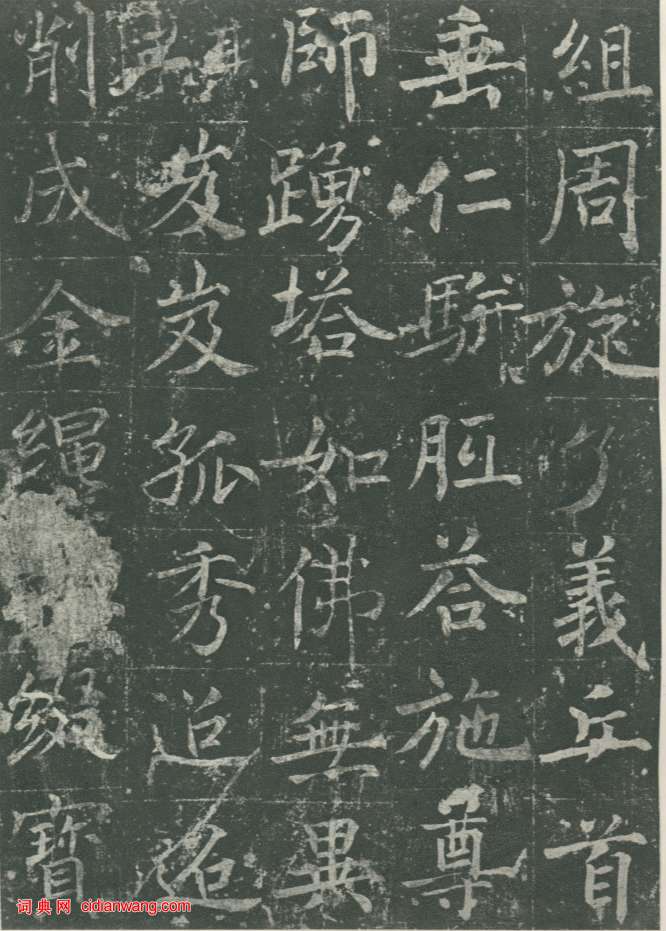 組周旋義丘首
垂仁駢答施尊
師踴塔如佛無異
其岌岌孤秀迢迢
削成金繩綴寶
词典网 cidianwang.com